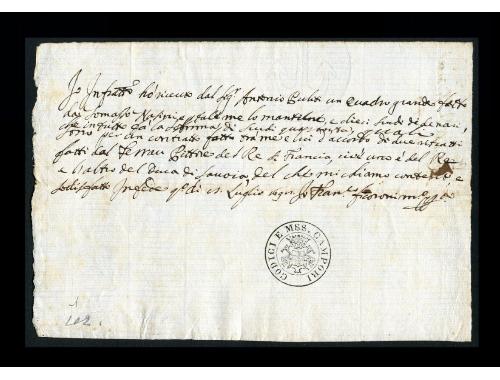 Io Infratto hò riceuto dal Sig. Antonio un quadro grande fatto
da Tomasso e tale me lo mantiene, e dieci scudi di denari
che in tutto è la somma di scudi quali
sono per un contratto fatto trà me e lui d'accordo di due ritratti
fatti dal Ferrau Pittore del Re di Francia, cioè uno è del Re
e l'altro del Duca di Savoia, del che mi chiamo contento e
sodisfatto In fede q.to dì Luglio Io Fran.co
CODICI E MSS. CAMPORI
102.